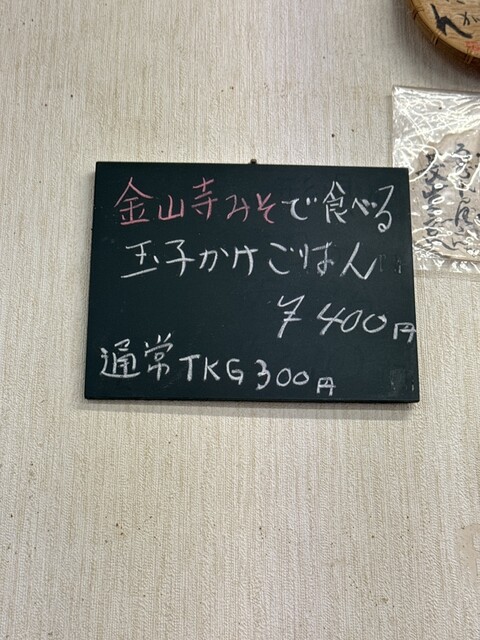 金山寺みそで食べる
玉子かけごはん
¥400円
通常TKG300円